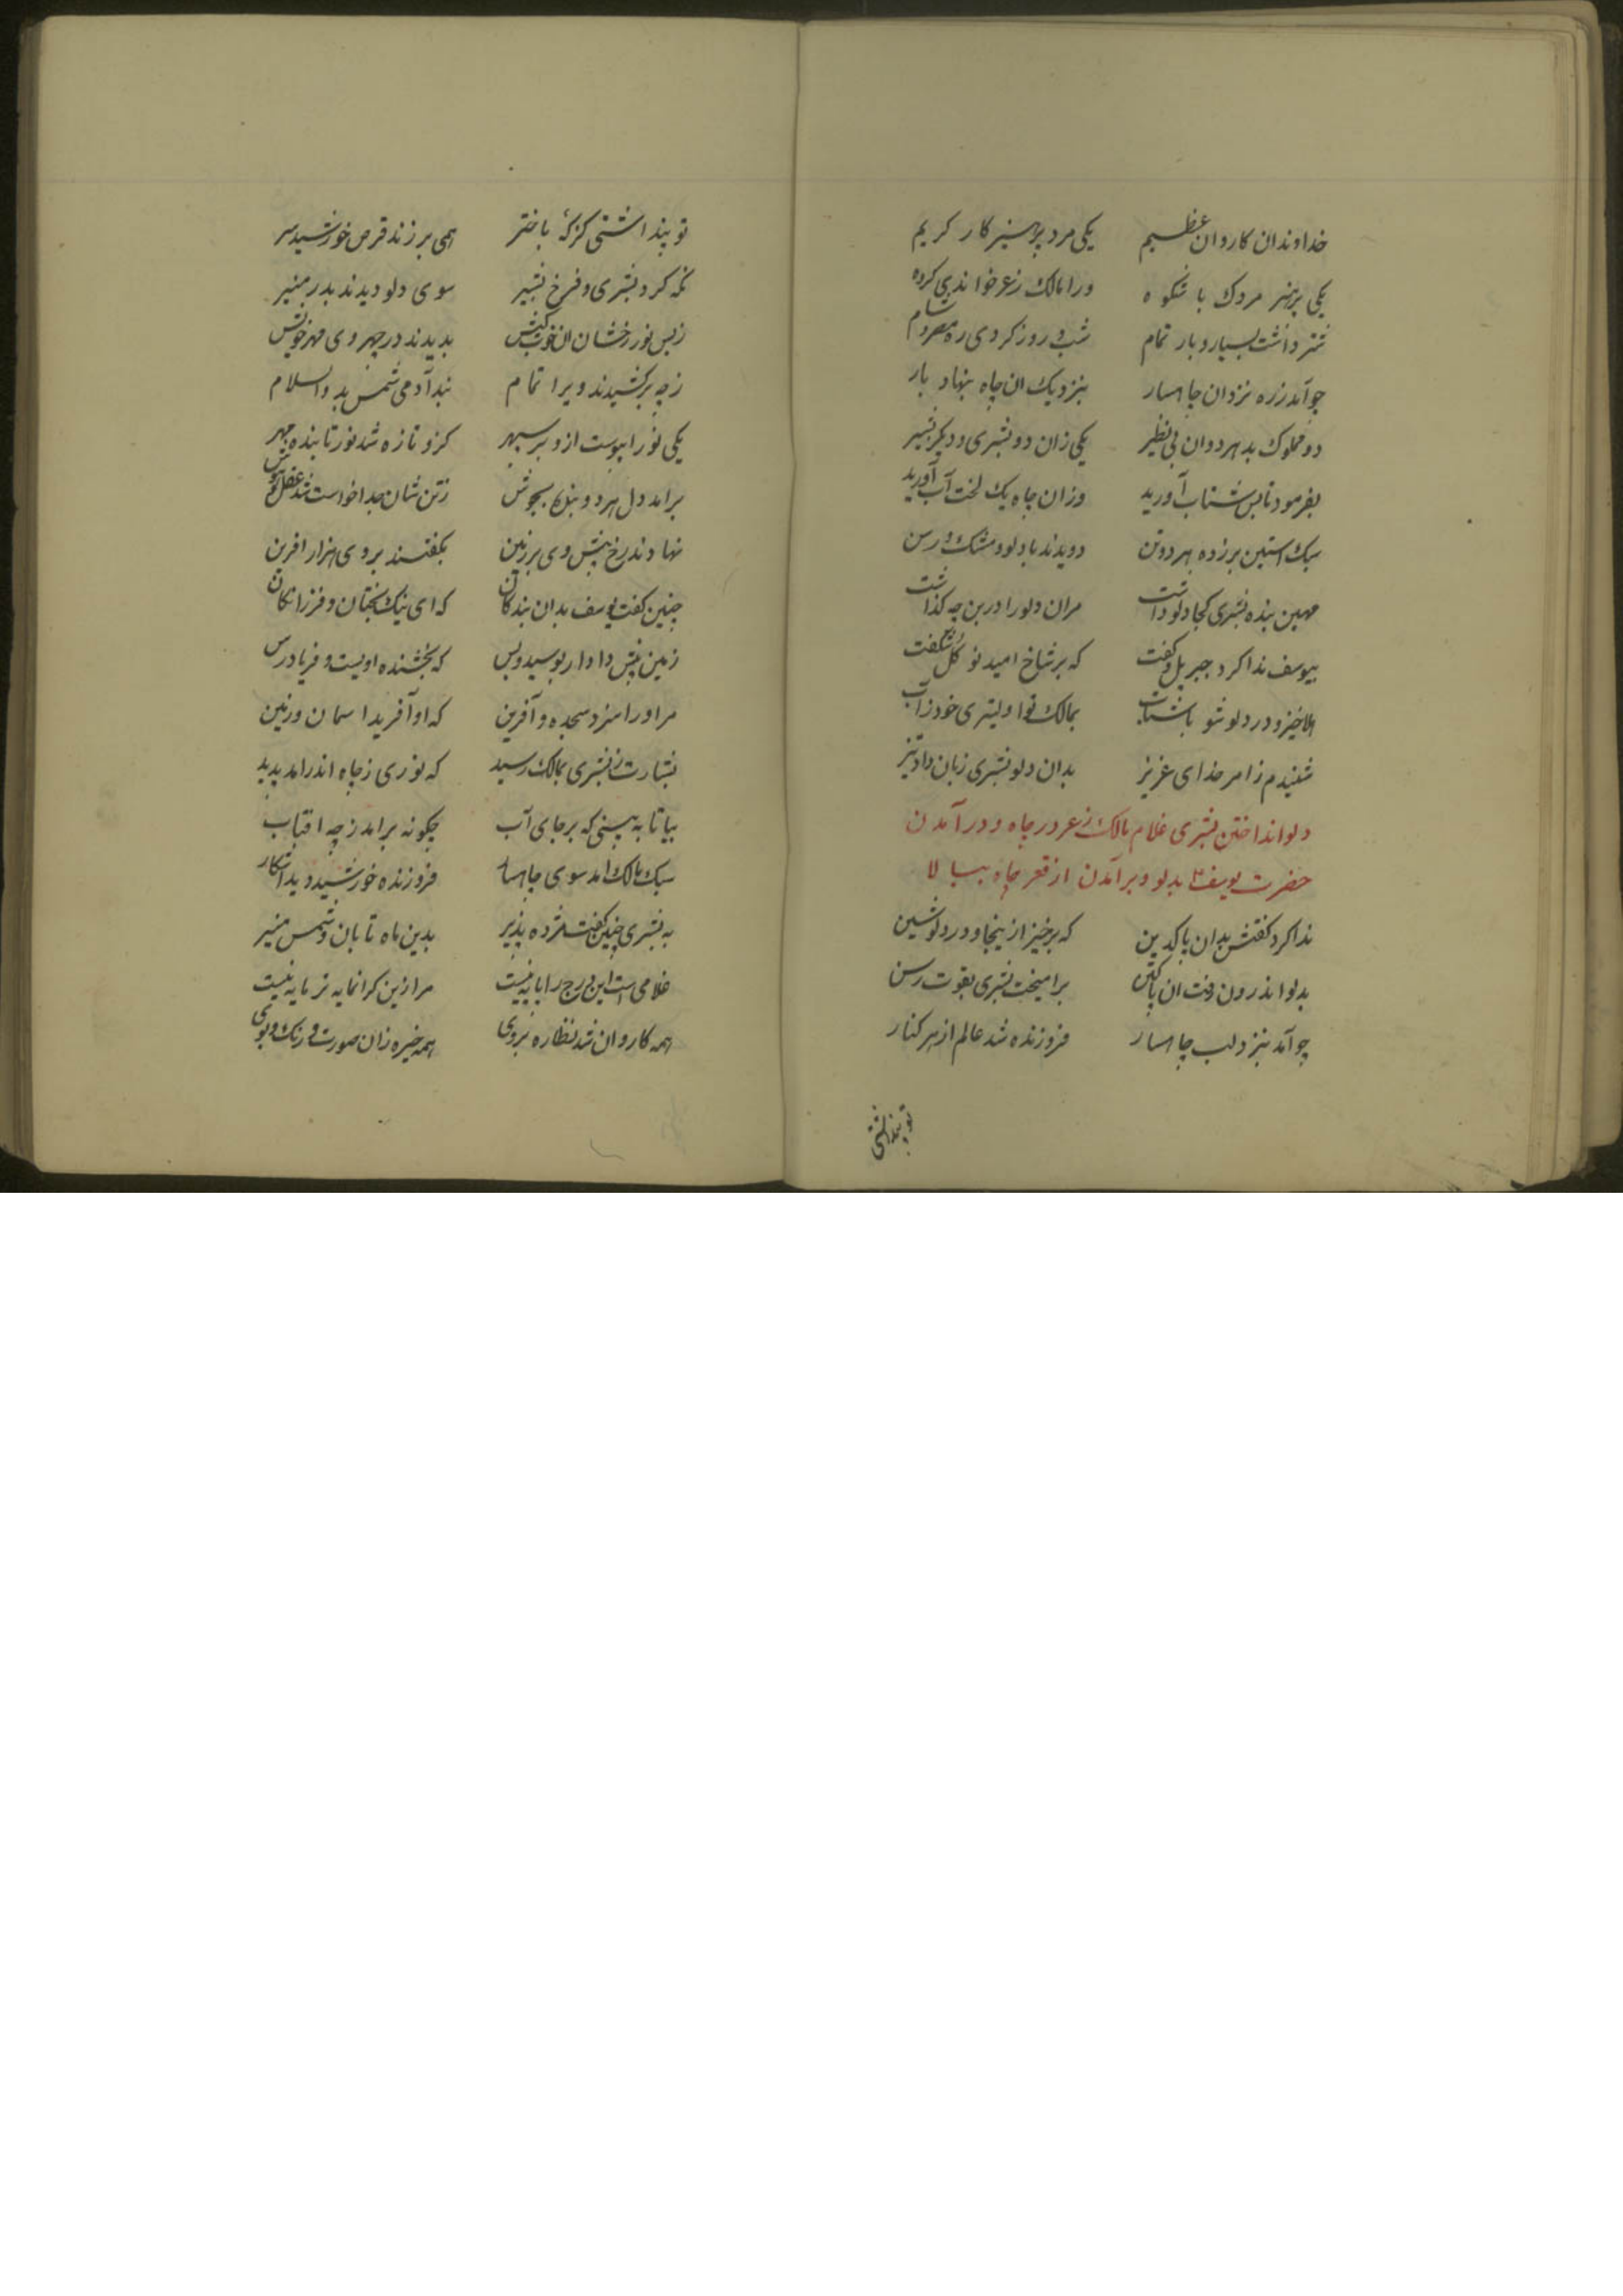 خداوندان کاروان عظیم یکی مرد پرهیزکار کریم
یکی پرهنر مردک با شکوه ورا مالک زعر خواندی کروه
شتر داشت بسیار و بار تمام شب و روز کردی ره مصر و شام
چو آمد زره نزد ان چاهسار بنزدیک ان چاه بنهاد بار
دو مملوک بد بهر دوان بی نظیر یکی زان دو بشری و دیکر بشیر
بفرمود تا بس شتاب آورید وزان چاه یک لخت آب آورید
سبک استین برزده هر دوتن دویدند با دلو و مشک و رسن
مهین بنده بشری کجا دلو داشت مران دلو را در بن چه کذاشت
بیوسف ندا کرد جبریل و کفت که بر شاخ امید نو کل شکفت
الا خیز و در دلو شو باشتاب بمالک تو اولیتری خود زآب
شنیدم ز امر خدای عزیز بدان دلو بشری زبان داد تیز
دلو انداختن بشری غلام مالک زعر در چاه و در آمدن
حضرت یوسف بدلو و بر آمدن از قعر چاه ببالا
ندا کرد کفتش بدان پاکدین که برخیز از ینجا و در دلو نشین
بدلو اندرون رفت ان پاکتن برامیخت بشری بقوت رسن
چو آمد بنزد لب چاهسار فروزنده شد عالم از هر کنار
تو پنداشتی
تو پنداشتی کز که باختر همی بر زند قرص خورشید سر
نکه کرد بشری و فرخ بشیر سوی دلو دیدند بدر منیر
زبس نور رخشان ان خوب کیش بدیدند در چهر وی مهر خویش
زچه برکشیدند ویرا تمام نبد آدمی شمس بد والسلام
یکی نور پیوست ازو بر سپهر کزو تازه شد نور تابنده مهر
برامد دل هر دو بنده بجوش زتن شان جدا خواست شد عقل و هوش
نهادند رخ پیش وی بر زمین بکفتند بر وی هزار افرین
چنین کفت یوسف بدان بندکان که ای نیک بختان و فرزانکان
زمین پیش دادار بوسید و بس که بخشنده اویست و فریادرس
مر اورا سزد سجده و آفرین که او آفرید اسمان و زمین
بشارت ز بشری بمالک رسید که نوری ز چاه اندر امد پدید
بیا تا به بینی که بر جای آب چکونه برامد ز چه افتاب
سبک مالک امد سوی چاهسار فروزنده خورشید دید اشکار
به بشری چنین کفت مژده پذیر بدین ماه تابان و شمس منیر
غلامی است این درج را پایه نیست مرا زین کرانمایه تر مایه نیست
همه کاروان شد نظاره بروی همه خیره زان صورت و رنک و بوی